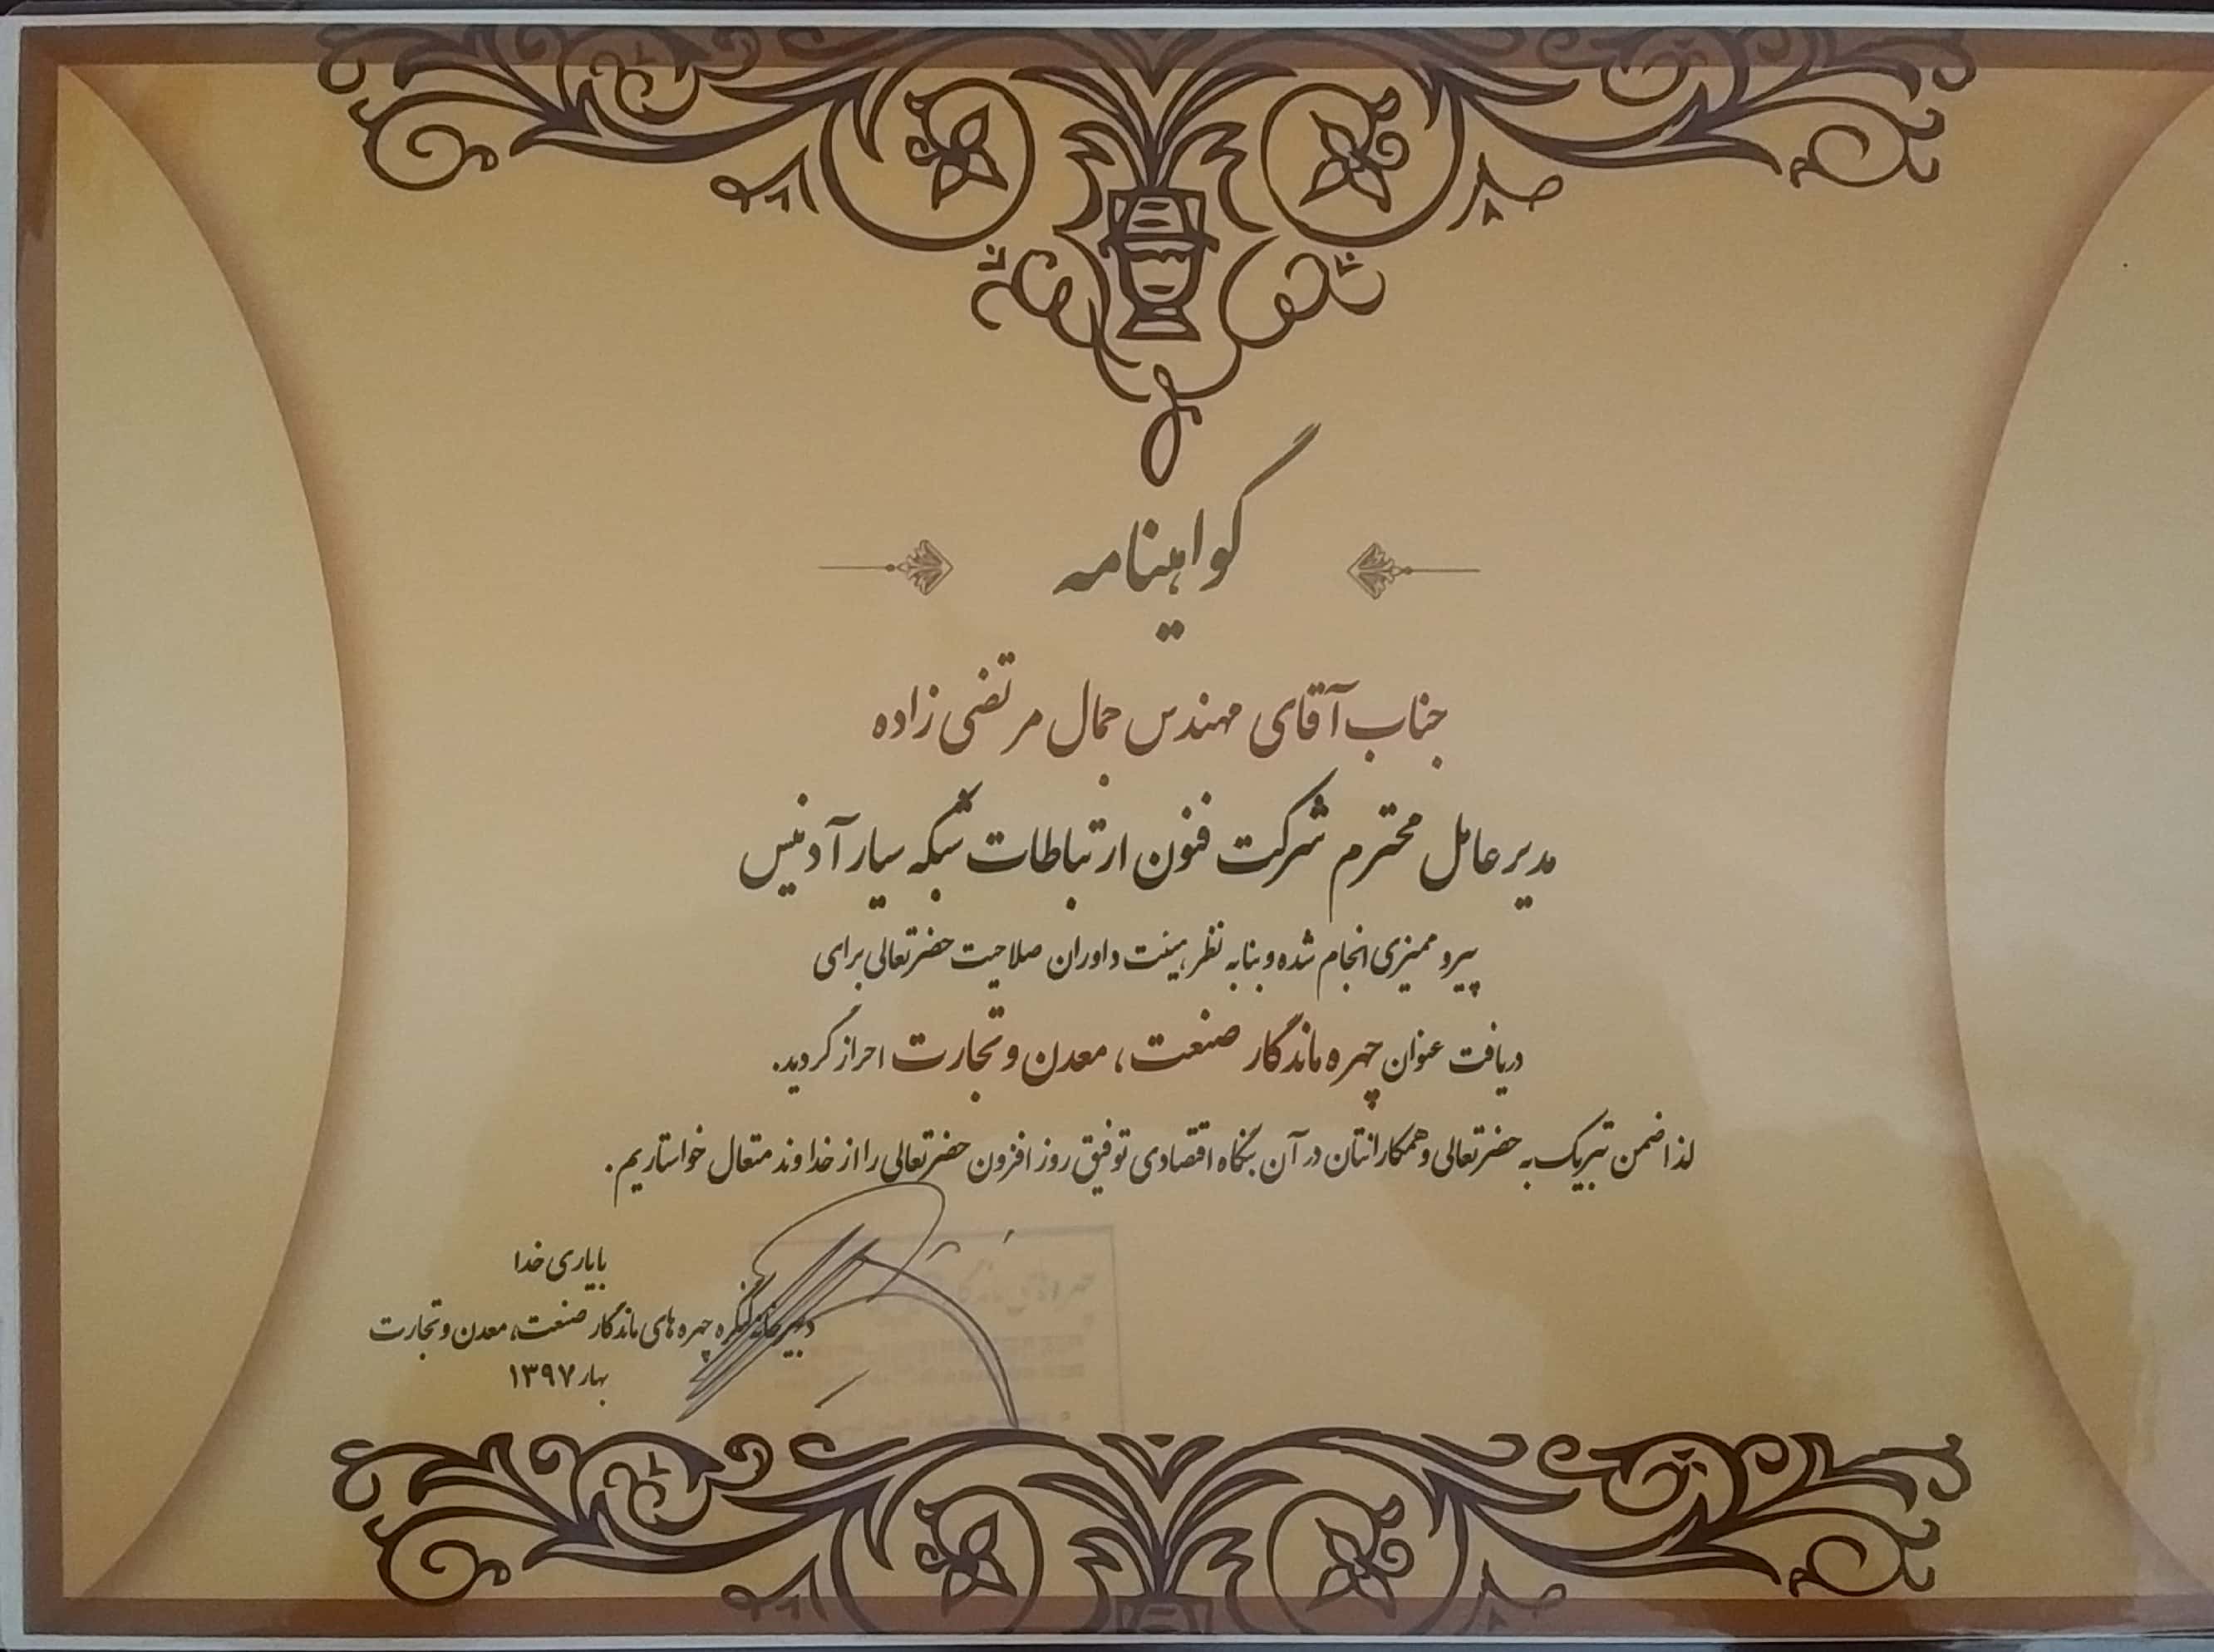 گواهینامه
جناب آقای مهندس جمال مرتضی زاده
مدیر عامل محترم شرکت فنون ارتباطات شبکه سیار آدنیس
پیرو ممیزی انجام شده و بنا به نظر هیئت داوران صلاحیت حضرتعالی برای
دریافت عنوان چهره ماندگار صنعت، معدن و تجارت احراز گردید.
لذا ضمن تبریک به حضرتعالی و همکارانتان در آن بنگاه اقتصادی توفیق روز افزون حضرتعالی را از خداوند متعال خواستاریم.
با یاری خدا
دبیرخانه کنگره چهره های ماندگار صنعت، معدن و تجارت
بهار ۱۳۹۷